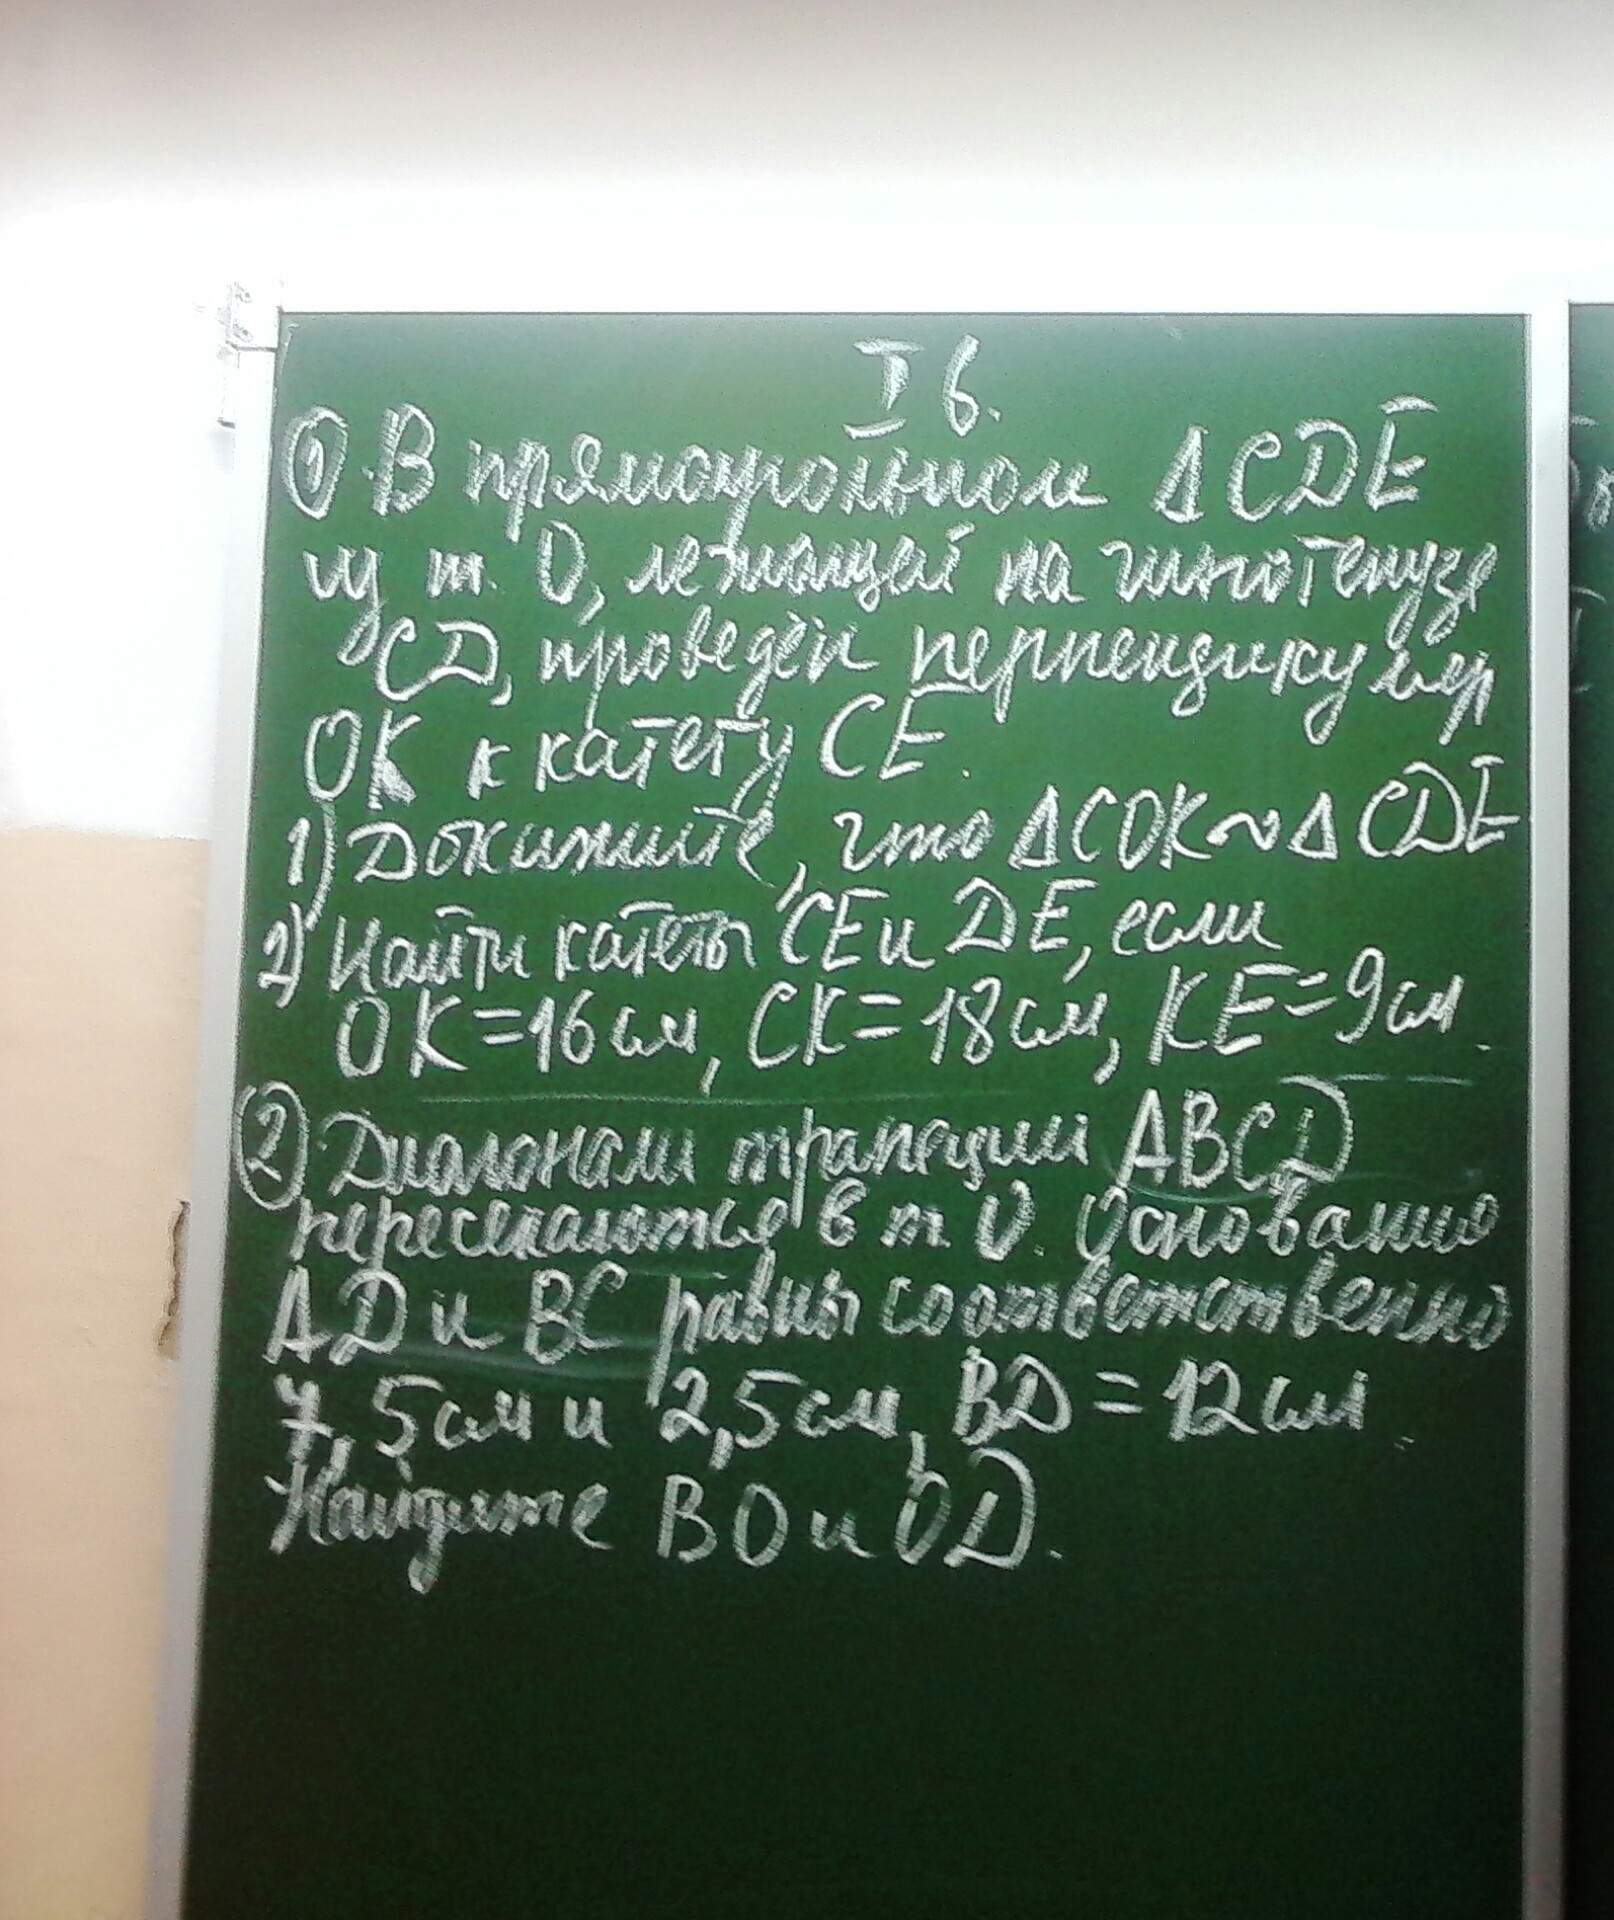 I в.
① В прямоугольном ΔCDE
из т. О, лежащей на гипотенузе
CD, проведён перпендикуляр
OK к катету CE.
1) Докажите, что ΔCOK∾Δ CDE
2) Найти катеты CE и DE, если
OK=16см, CK=18см, KE=9см.
② Диагонали трапеции ABCD
пересекаются в т. О. Основания
AD и BC равны соответственно
7,5см и 2,5см, BD=12см.
Найдите BO и OD.